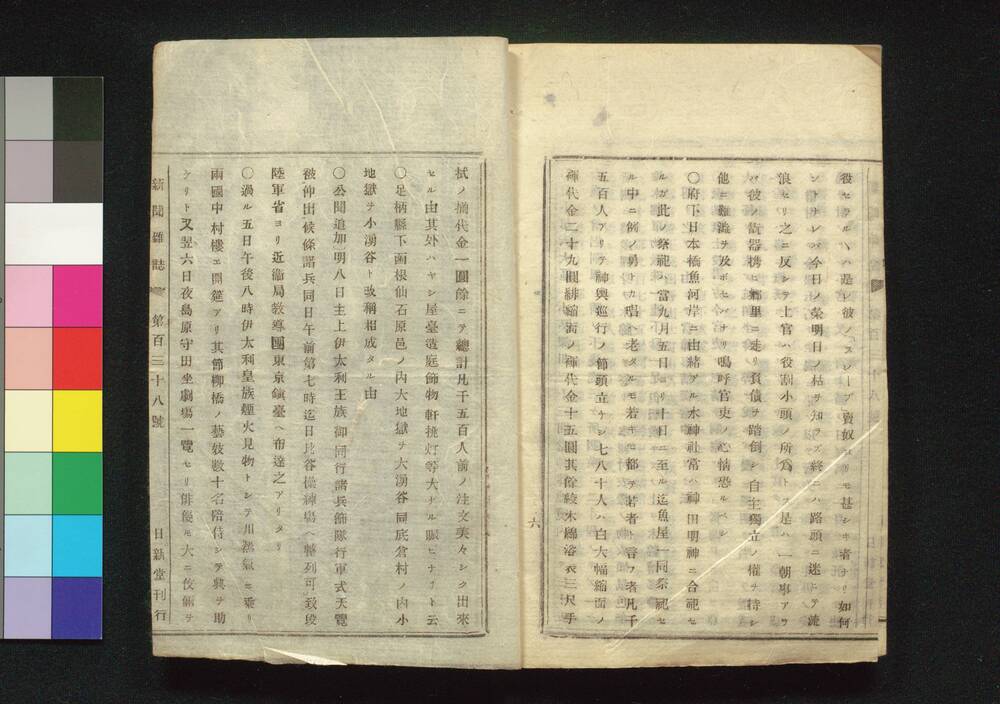 役セラルヽハ是レ彼ノ「スレーブ」賣奴ヨリモ甚シキ者ナリ如何
ントナレバ今日ノ榮明日ノ枯ヲ知ラズ終ニハ路頭ニ迷ヒテ流
浪セリ之ニ反シテ士官ハ役割小頭ノ所爲トヲ是ハ一朝事アラ
バ彼ノ器携ヒ郷里ニ走リ負債ヲ踏倒シ自主獨立ノ權ヲ持シ
他ニ難澁ヲ及ボセシナリ嗚呼官吏ノ心情恐ルベシ
〇府下日本橋魚河岸ニ由緒アル水神社常ハ神田明神ニ合祀セ
ルガ此ノ祭祀ハ當九月五日ヨリ十日ニ至ル迄魚屋一同祭祀セ
ル中ニ例ノ勇ミカ唱ヘ老タルモ若キモ都ヲ若者ト言フ者凡千
五百人アリテ神輿巡行ノ節頭立ツシ七八十人ハ白大幅縮面ノ
褌代金二十九圓緋縮面ノ褌代金十五圓其餘絞木綿浴衣三尺手
六
拭ノ揃代金一圓餘ニテ總計凡千五百人前ノ注文美々シク出來
セル由其外ハヤシ屋臺造庭飾物軒挑灯等大ナル賑ヒナリト云
〇足柄縣下函根仙石原邑ノ内大地獄ヲ大湧谷同底倉村ノ内小
地獄ヲ小湧谷ト改稱相成タル由
〇公聞追加明八日主上伊太利王族御同行諸兵飾隊行軍式天覽
被仰出候條諸兵同日午前第七時迄日比谷操練塲ヘ整列可致段
陸軍省ヨリ近衞局教導團東京鎭臺ヘ布達之アリタリ
〇過ル五日午後八時伊太利皇族煙火見物トシテ川蒸氣ニ乗リ
兩國中村樓エ開筵アリ其節柳橋ノ藝妓數十名陪侍シテ興ヲ助
ケリト又翌六日夜島原守田坐劇場一覽セリ俳優モ大ニ伎倆ヲ
新聞雜誌 第百三十八號 日新堂刊行